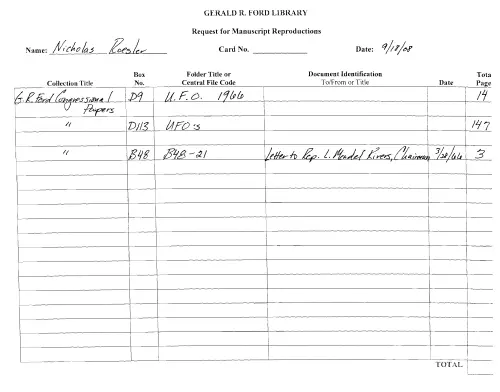 GERALD R. FORD LIBRARY
Request for Manuscript Reproductions
Name: Nicholas Roesler Card No. Date: 9/18/08
Collection Title Box No. Folder Title or Central File Code Document Identification To/From or Title Date Tota Page
G.R. Ford Congressional Papers D9 U.F.O. 1966 14
" D113 UFO's 147
" B48 B48-21 Letter to Rep. L. Mendel Rivers, Chairman 3/28/66 3
TOTAL